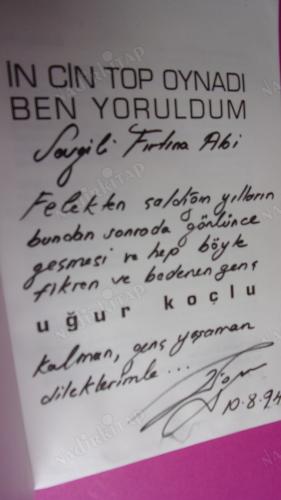 İN CİN TOP OYNADI
BEN YORULDUM
Sevgili Fırtına Abi
Felekten çaldığın yılların
bundan sonrada gönlünce
geçmesi ve hep böyle
fikren ve bedenen genç
uğur koçlu
kalman, genç yaşaman
dileklerimle...
10.8.94